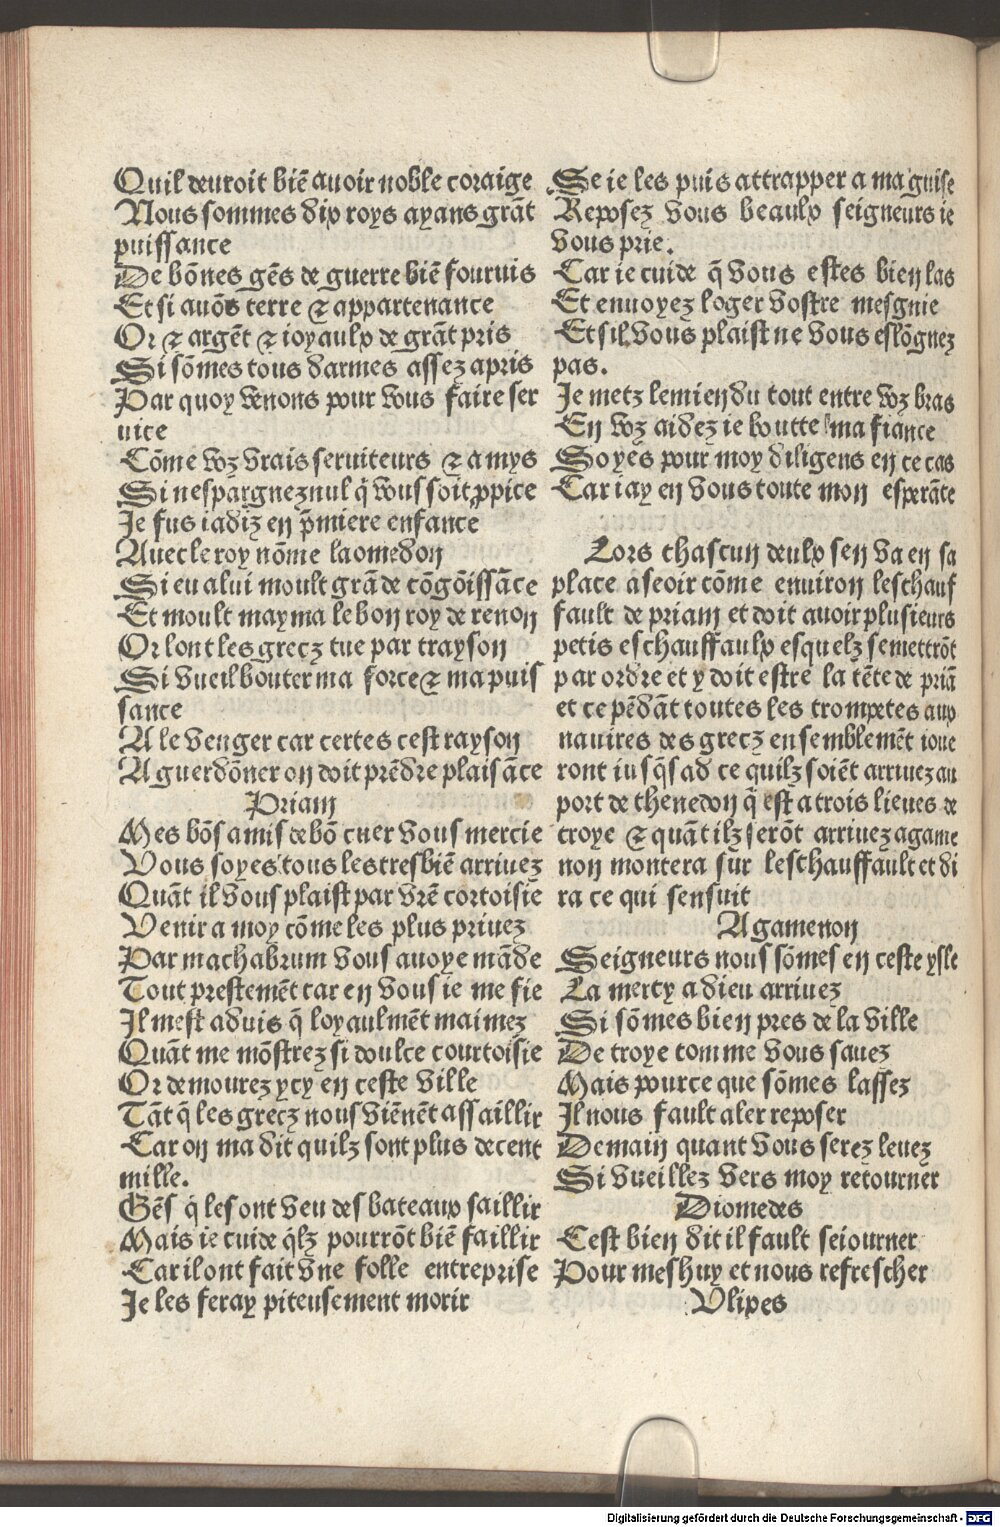 Quil deuroit biẽ auoir noble coraige
Nous sommes dix roys ayans grãt
puissance
De bõnes gẽs de guerre biẽ fournis
Et si auõs terre ⁊ appartenance
Or ⁊ argẽt ⁊ ioyaulx de grãt pris
Si sõmes tous darmes assez apris
Par quoy venons pour vous faire ser
uice
Cõme voz vrais seruiteurs ⁊ amys
Si nespargnez nul q̃ vous soit ꝓpice
Je fus iadiz en p̃miere enfance
Auec le roy nõme laomedon
Si eu a lui moult grãde cõgõissãce
Et moult mayma le bon roy de renon
Or lont les grecz tue par trayson
Si vueil bouter ma force ⁊ ma puis
sance
A le venger car certes cest rayson
A guerdõner on doit prẽdre plaisãce
Priam
Mes bõs amis de bõ cuer vous mercie
Vous soyes tous les tresbiẽ arriuez
Quãt il vous plaist par vr̃e cortoisie
Venir a moy cõme les plus priuez
Par machabrum vous auoye mãde
Tout prestemẽt car en vous ie me fie
Il mest aduis q̃ loyaulmẽt maimez
Quãt me mõstrez si doulce courtoisie
Or demourez ycy en ceste ville
Tãt q̃ les grecz nous viẽnẽt assaillir
Car on ma dit quilz sont plus de cent
mille.
Gẽs q̃ les ont veu des bateaux saillir
Mais ie cuide q̃lz pourrõt biẽ faillir
Car il ont fait vne folle entreprise
Je les feray piteusement morir
Se ie les puis attrapper a ma guise
Reposez vous beaulx seigneurs ie
vous prie.
Car ie cuide q̃ vous estes bien las
Et enuoyez loger vostre mesgnie
Et sil vous plaist ne vous eslõgnez
pas.
Je metz le mien du tout entre voz bras
En voz aidez ie boutte ma fiance
Soyes pour moy diligens en ce cas
Car iay en vous toute mon esperãce
Lors chascun deulx sen va en sa
place aseoir cõme enuiron leschauf
fault de priam et doit auoir plusieurs
petis eschauffaulx esquelz se mettrõt
par ordre et y doit estre la tẽte de priã
et ce pẽdãt toutes les trompetes aux
nauires des grecz ensemblemẽt ioue
ront iusq̃s ad ce quilz soiẽt arriuez au
port de thenedon q̃ est a trois lieues de
troye ⁊ quãt ilz serõt arriuez agame
non montera sur leschauffault et di
ra ce qui sensuit
Agamenon
Seigneurs nous sõmes en ceste ysle
La mercy a dieu arriuez
Si sõmes bien pres de la ville
De troye comme vous sauez
Mais pource que sõmes lassez
Il nous fault aler reposer
Demain quant vous serez leuez
Si vueillez vers moy retourner
Diomedes
Cest bien dit il fault seiourner
Pour meshuy et nous refrescher
Vlixes
Digitalisierung gefördert durch die Deutsche Forschungsgemeinschaft - DFG